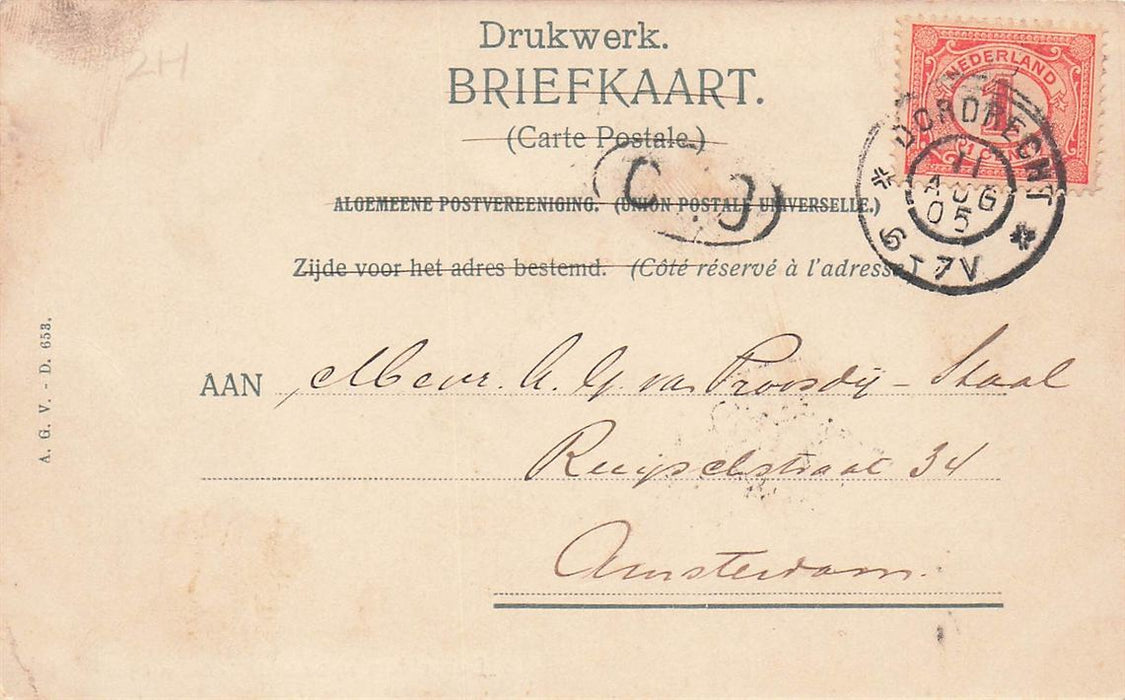 Drukwerk.
BRIEFKAART.
(Carte Postale.)
ALGEMEENE POSTVEREENIGING. (UNION POSTALE UNIVERSELLE.)
Zijde voor het adres bestemd. (Côté réservé à l'adresse
AAN Mevr. A. G. van Proosdij - Staal
Ruijschstraat 34
Amsterdam.
A. G. V. - D. 653.
2H
NEDERLAND
1
1 CENT
DORDRECHT
11
AUG
05
6-7V